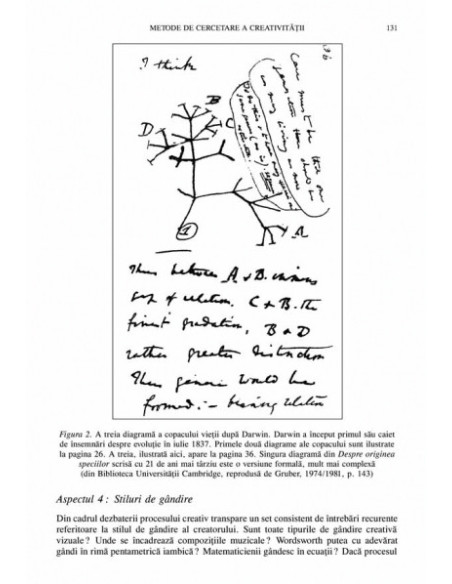 METODE DE CERCETARE A CREATIVITĂȚII 131
I think
Case must be that one
generation then should be
as many living as now
To do this & to have many species in
same genus (as is) requires
extinction
B
D
C
1
A
Thus between A & B. immens
gap of relation. C & B. the
finest gradation, B & D
rather greater distinction
Thus genera would be
formed. — bearing relation
Figura 2. A treia diagramă a copacului vieții după Darwin. Darwin a început primul său caiet
de însemnări despre evoluție în iulie 1837. Primele două diagrame ale copacului sunt ilustrate
la pagina 26. A treia, ilustrată aici, apare la pagina 36. Singura diagramă din Despre originea
speciilor scrisă cu 21 de ani mai târziu este o versiune formală, mult mai complexă
(din Biblioteca Universității Cambridge, reprodusă de Gruber, 1974/1981, p. 143)
Aspectul 4 : Stiluri de gândire
Din cadrul dezbaterii procesului creativ transpare un set consistent de întrebări recurente
referitoare la stilul de gândire al creatorului. Sunt toate tipurile de gândire creativă
vizuale ? Unde se încadrează compozițiile muzicale ? Wordsworth putea cu adevărat
gândi în rimă pentametrică iambică ? Matematicienii gândesc în ecuații ? Dacă procesul